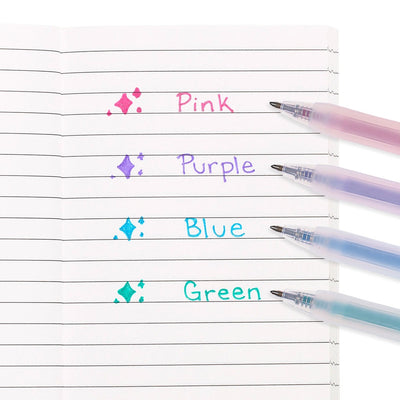 Pink
Purple
Blue
Green